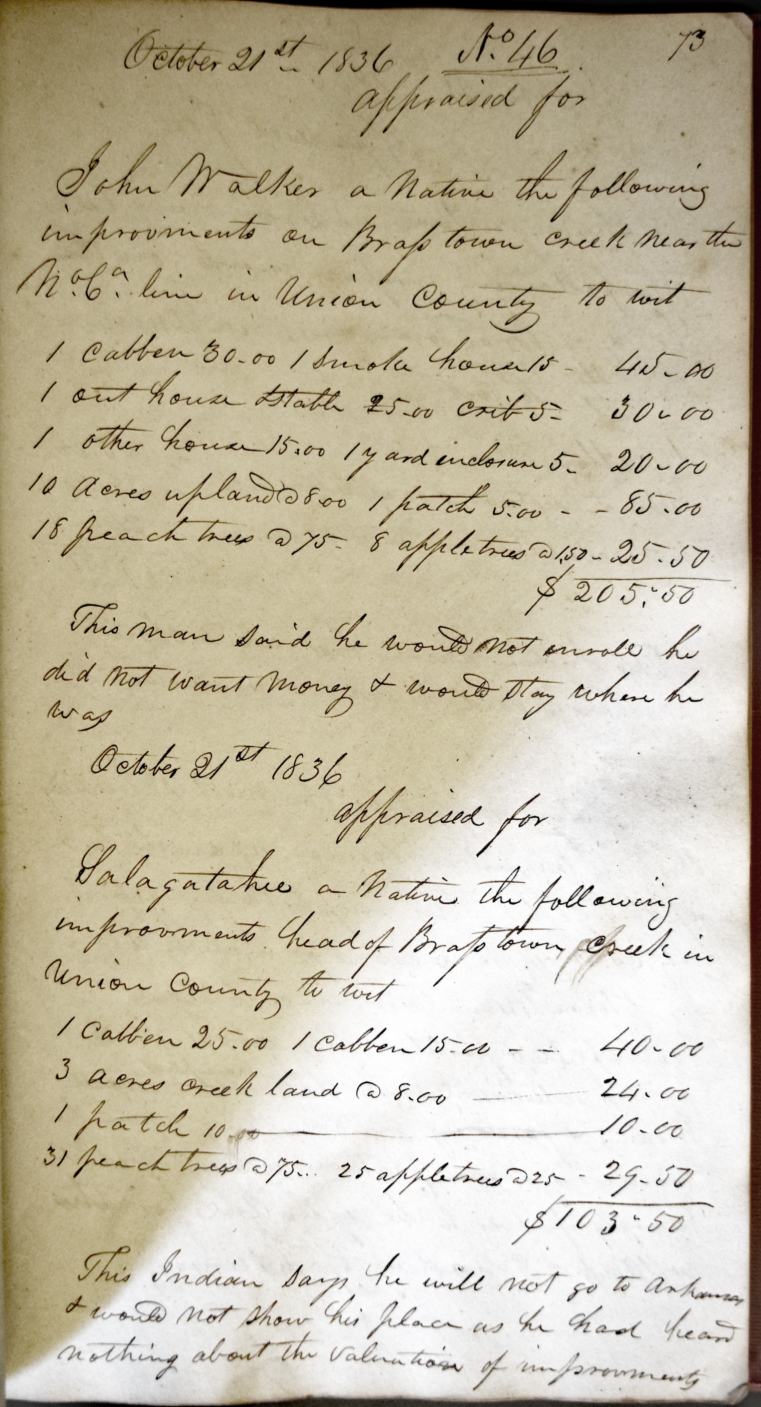 73
October 21st 1836 No. 46
appraised for
John Walker a Native the following
improvments on Brasstown creek near the
No. Ca. line in Union County to wit
1 cabben 30-00 1 smoke house 15 - 45-00
1 out house & stable 25-00 crib 5- 30-00
1 other house 15.00 1 yard inclosure 5- 20-00
10 acres upland @ 8.00 1 patch 5.00 - - 85-00
18 peach trees @ 75- 8 apple trees @ 1.50 - 25-50
$ 205.50
This man said he would not enroll he
did not want money & would stay where he
was
October 21st 1836
appraised for
Salagatahee a Native the following
improvments head of Brasstown creek in
Union County to wit
1 cabben 25-00 1 cabben 15-00 - - 40-00
3 acres creek land @ 8.00 24-00
1 patch 10.00 10-00
31 peach trees @ 75.. 25 apple trees @ 25 - 29-50
$ 103-50
This Indian says he will not go to Arkansas
& would not show his place as he had heard
nothing about the valuation of improvments